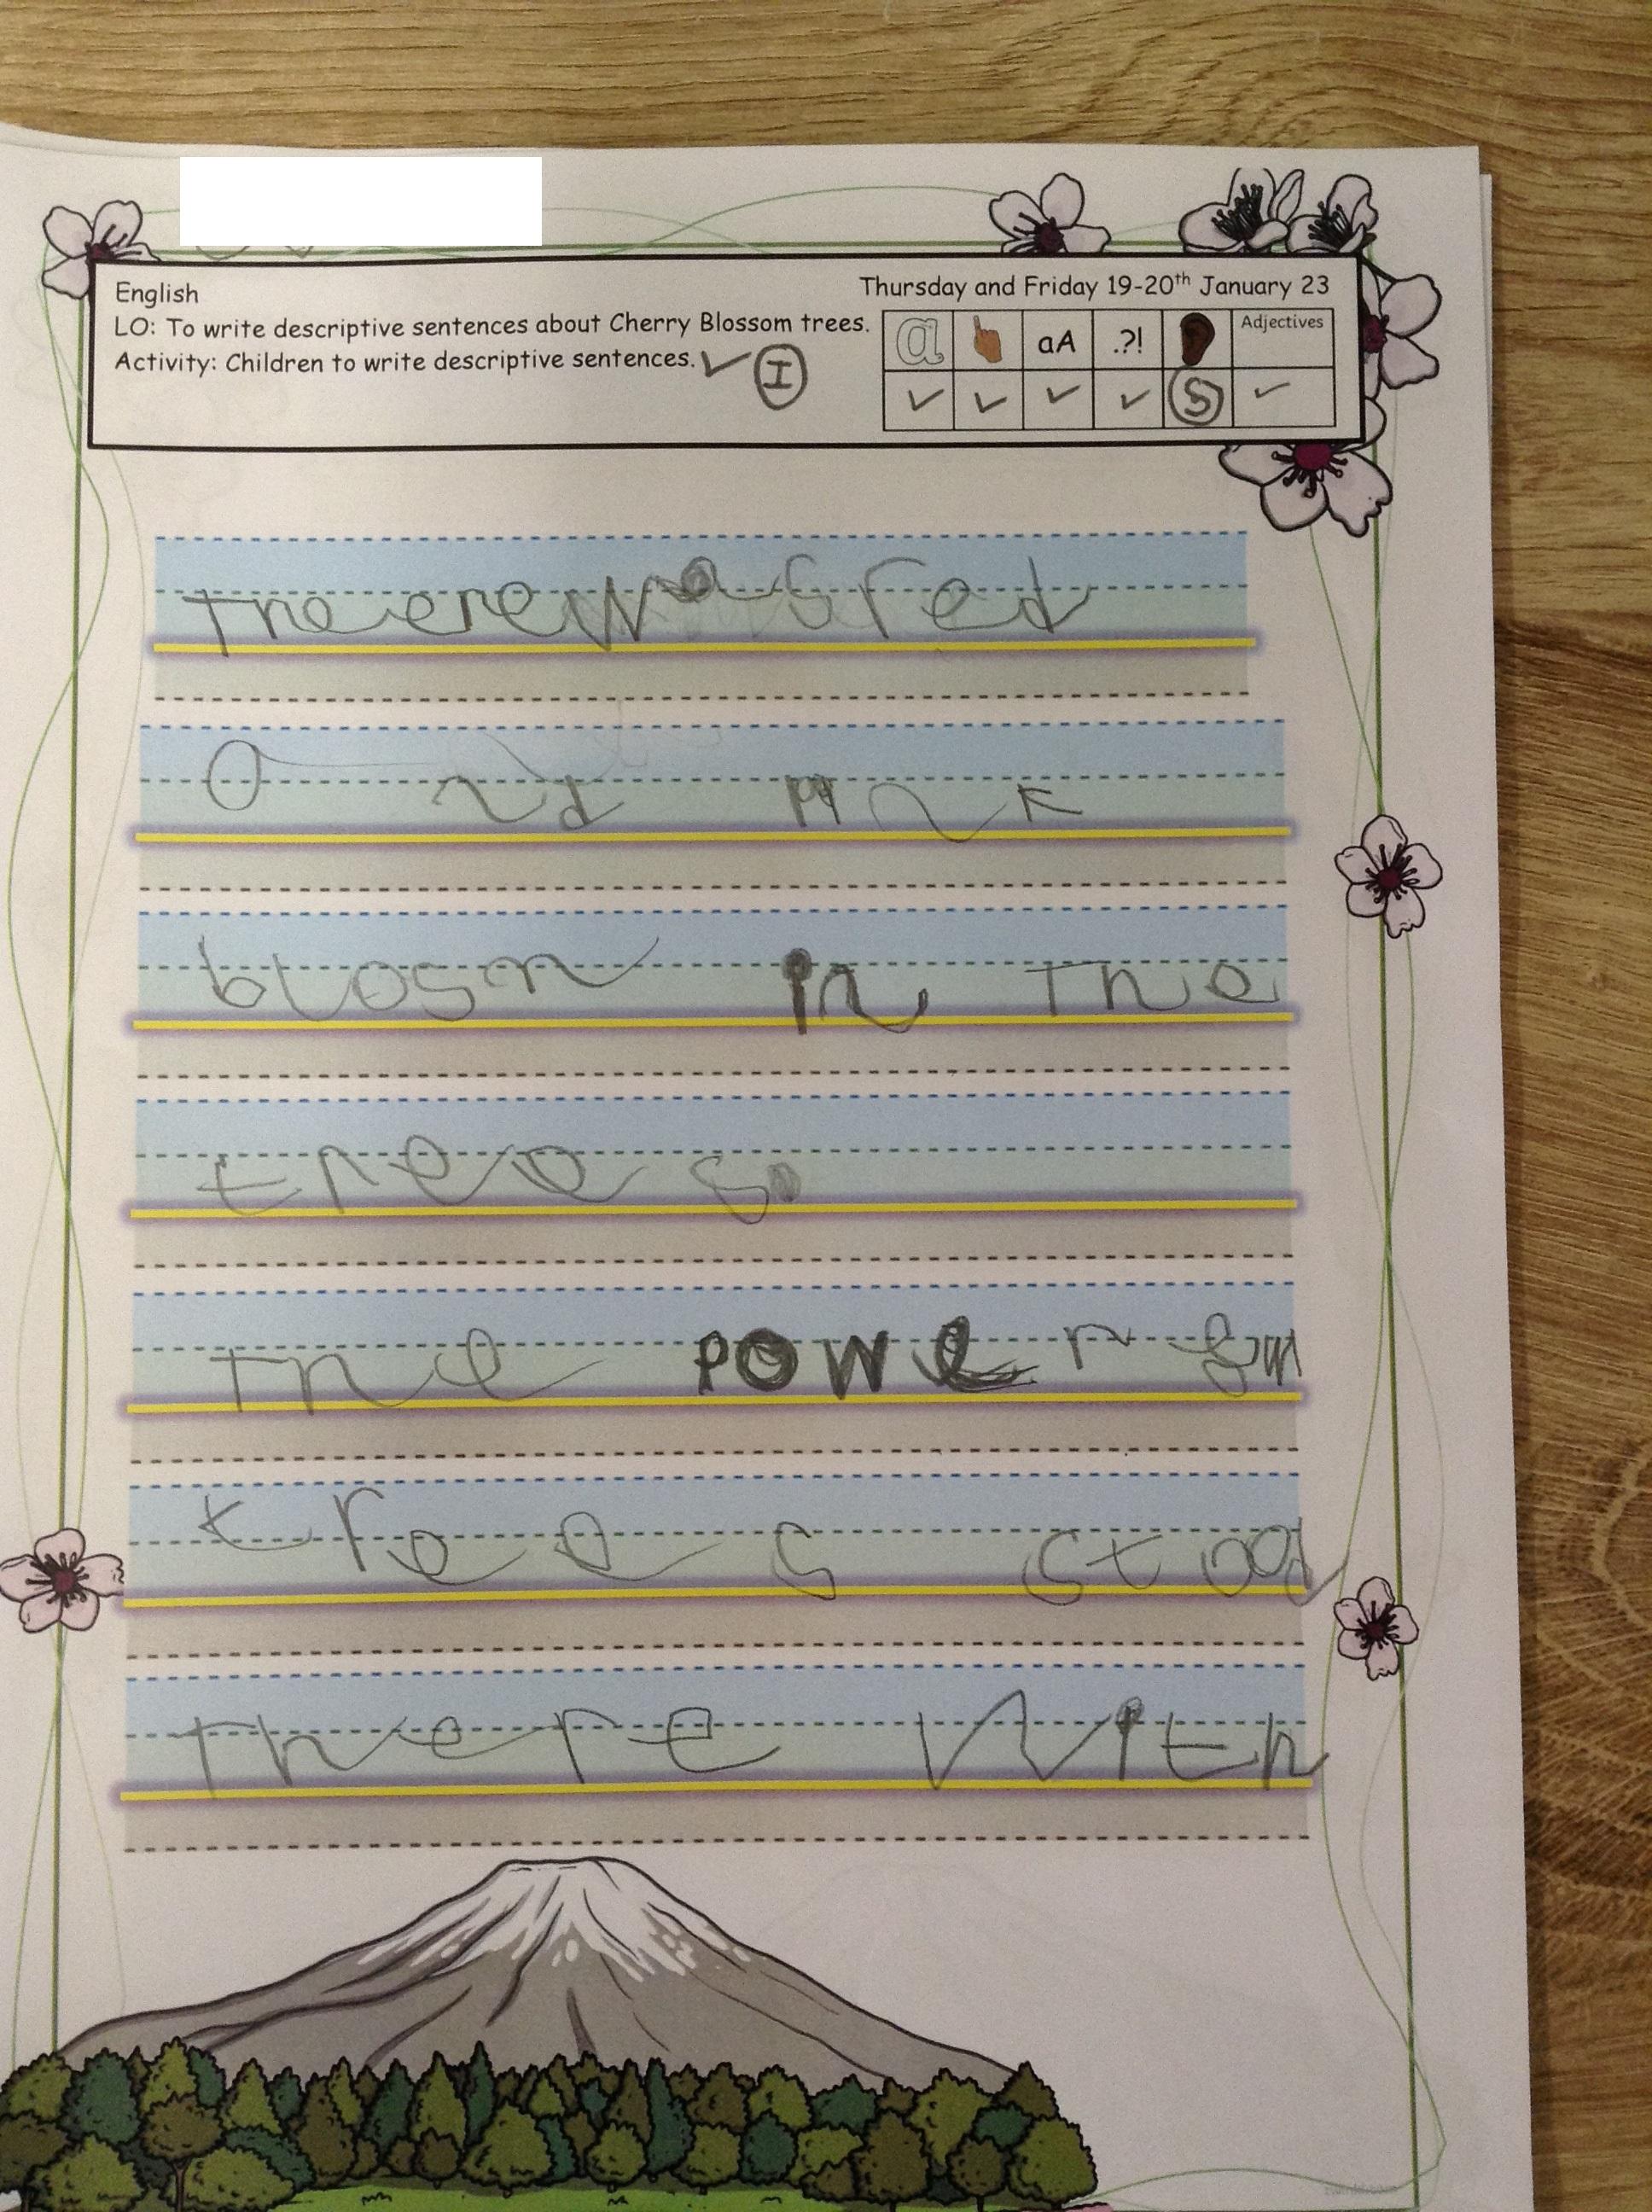 English
Thursday and Friday 19-20th January 23
LO: To write descriptive sentences about Cherry Blossom trees.
Activity: Children to write descriptive sentences. I
a aA .?! Adjectives
S
Theere was red
and pink
blosm in the
trees.
The power ful
trees stood
there With